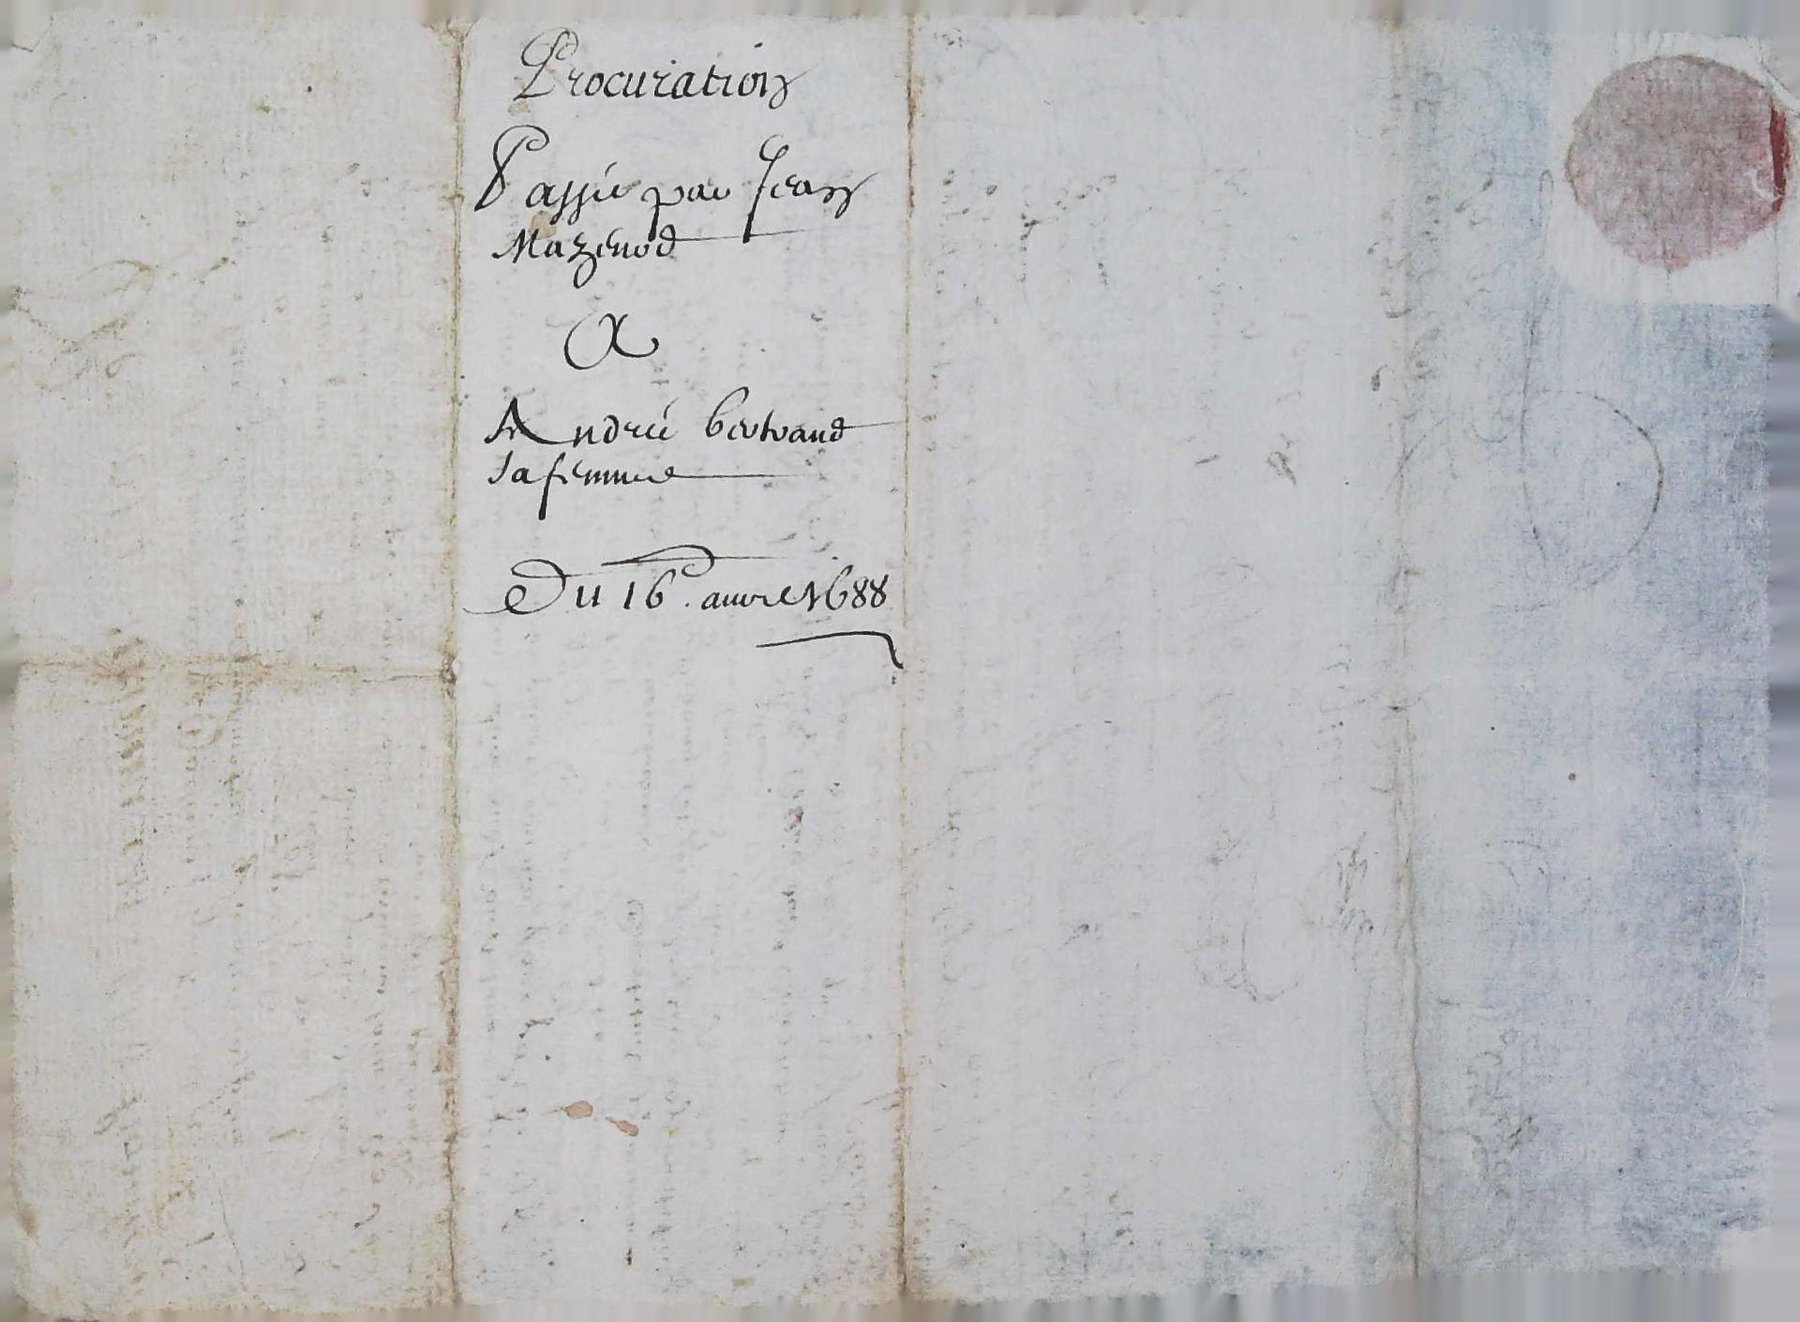 Procuration
Passée par Jean
Mazenod
A
Andrée bertrand
sa femme
Du 16e. avvrel 1688